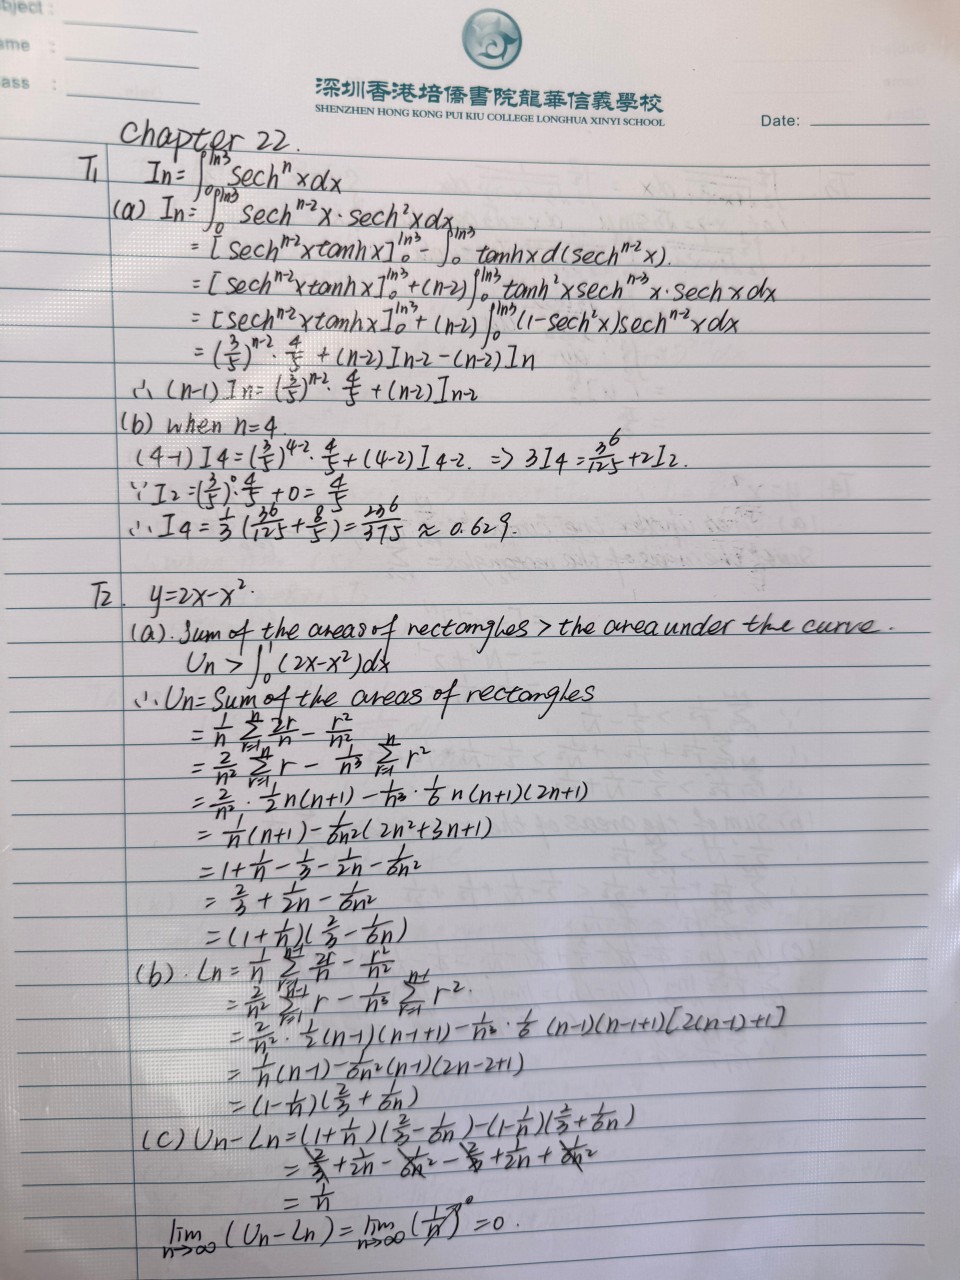 bject :
ame :
ass :
深圳香港培僑書院龍華信義學校
SHENZHEN HONG KONG PUI KIU COLLEGE LONGHUA XINYI SCHOOL
Date:
Chapter 22.
T1 In=∫₀^ln3 sechⁿxdx
(a) In=∫₀^ln3 sech^n-2 x·sech²xdx
=[sech^n-2 xtanhx]₀^ln3 - ∫₀^ln3 tanhxd(sech^n-2 x).
=[sech^n-2 xtanhx]₀^ln3 +(n-2)∫₀^ln3 tanh²xsech^n-3 x·sechxdx
=[sech^n-2 xtanhx]₀^ln3 +(n-2)∫₀^ln3 (1-sech²x)sech^n-2 xdx
=(3/5)^n-2 · 4/5 +(n-2)In-2 -(n-2)In
∴(n-1)In=(3/5)^n-2 · 4/5 +(n-2)In-2
(b) when n=4.
(4-1)I4=(3/5)^4-2 · 4/5 +(4-2)I4-2. => 3I4=36/125+2I2.
∵I2=(3/5)⁰·4/5 +0=4/5
∴I4=1/3(36/125+8/5)=236/375 ≈ 0.629.
T2. y=2x-x².
(a). Sum of the areas of rectangles > the area under the curve.
Un>∫₀^1 (2x-x²)dx
∴Un=Sum of the areas of rectangles
=1/n Σ_r=1^n 2r/n - r²/n²
=2/n² Σ_r=1^n r - 1/n³ Σ_r=1^n r²
=2/n² · 1/2 n(n+1) - 1/n³ · 1/6 n(n+1)(2n+1)
=1/n(n+1) - 1/6n²(2n²+3n+1)
=1+1/n-1/3-1/2n-1/6n²
=2/3+1/2n-1/6n²
=(1+1/n)(2/3-1/6n)
(b). Ln=1/n Σ_r=1^n-1 2r/n - r²/n²
=2/n² Σ_r=1^n-1 r - 1/n³ Σ_r=1^n-1 r².
=2/n² · 1/2(n-1)(n-1+1) - 1/n³ · 1/6(n-1)(n-1+1)[2(n-1)+1]
=1/n(n-1) - 1/6n²(n-1)(2n-2+1)
=(1-1/n)(2/3+1/6n)
(c) Un-Ln=(1+1/n)(2/3-1/6n)-(1-1/n)(2/3+1/6n)
=2/3+1/2n-1/6n²-2/3+1/2n+1/6n²
=1/n
lim n→∞ (Un-Ln)=lim n→∞ (1/n)⁰=0.